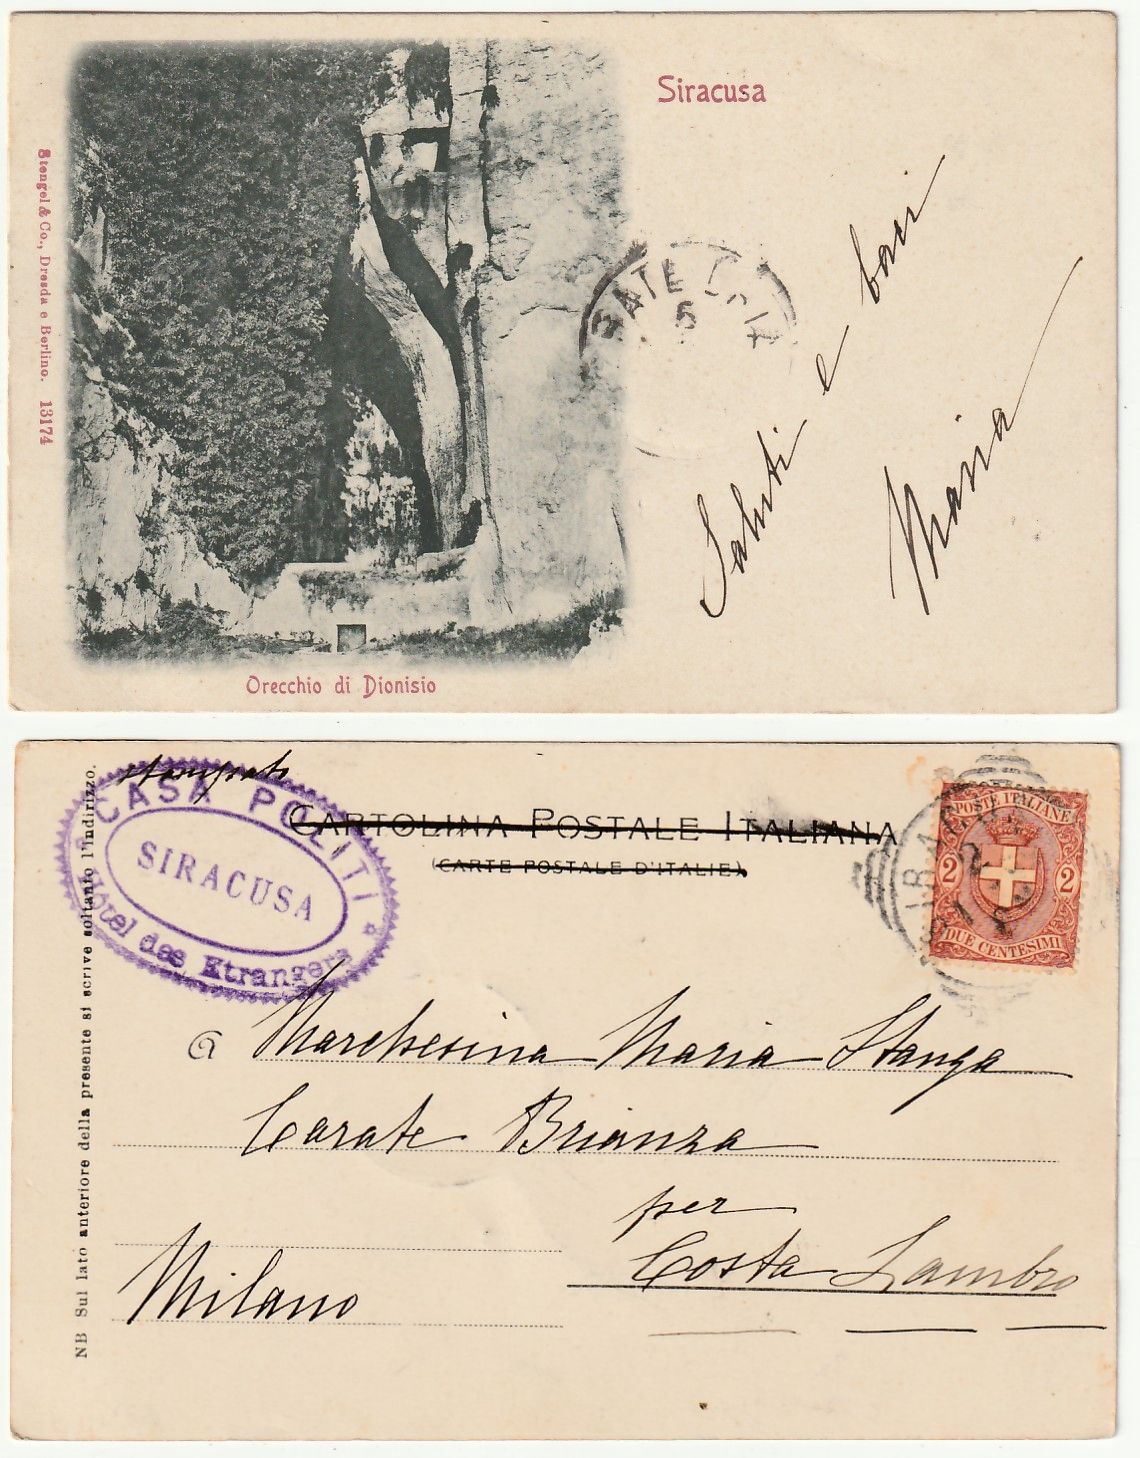 Siracusa
Stengel & Co., Dresda e Berlino. 13174
Saluti e baci
Maria
Orecchio di Dionisio
stampato
CASA POLITI
SIRACUSA
Hôtel des Etrangers
CARTOLINA POSTALE ITALIANA
(CARTE POSTALE D'ITALIE)
POSTE ITALIANE
2 2
DUE CENTESIMI
NB Sul lato anteriore della presente si scrive soltanto l'indirizzo.
a Marchesina Maria Stanga
Carate Brianza
per
Costa Lambro
Milano